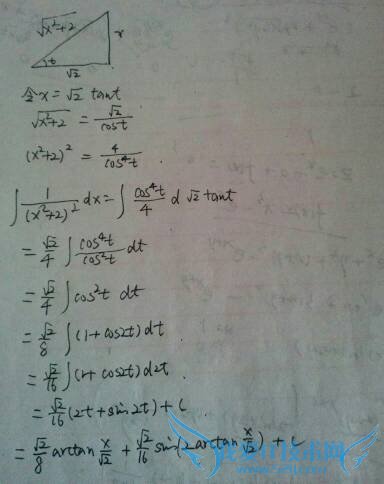 √x²+2
x
t
√2
令x = √2 tant
√x²+2 = √2/cost
(x²+2)² = 4/cos⁴t
∫ 1/(x²+2)² dx = ∫ cos⁴t/4 d √2 tant
= √2/4 ∫ cos⁴t/cos²t dt
= √2/4 ∫ cos²t dt
= √2/8 ∫ (1+cos2t) dt
= √2/16 ∫ (1+cos2t) d2t
= √2/16 (2t+sin2t) + C
= √2/8 arctan x/√2 + √2/16 sin(2arctan x/√2) + C